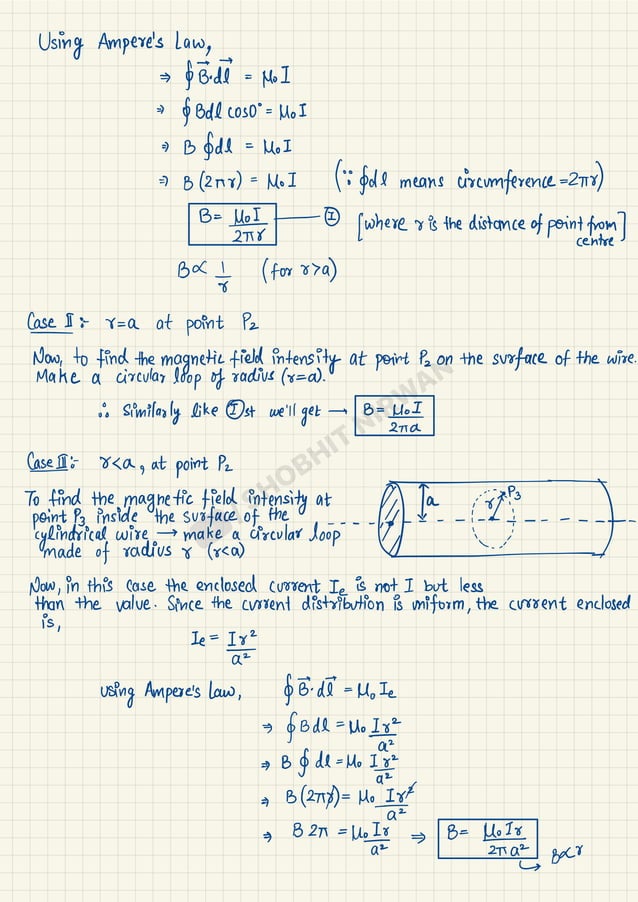 Using Ampere's Law,
⇒ ∮B⃗.dl⃗ = μ₀I
⇒ ∮Bdl cos0° = μ₀I
⇒ B ∮dl = μ₀I
⇒ B(2πr) = μ₀I (∵ ∮dl means circumference = 2πr)
B = μ₀I / 2πr — Ⓘ [where r is the distance of point from centre]
B ∝ 1/r (for r>a)
Case II :- r=a at point P₂
Now, to find the magnetic field intensity at point P₂ on the surface of the wire.
Make a circular loop of radius (r=a).
∴ Similarly like Ⓘst we'll get → B = μ₀I / 2πa
Case III :- r<a, at point P₂
To find the magnetic field intensity at
point P₃ inside the surface of the
cylindrical wire → make a circular loop
made of radius r (r<a)
a
r
P₃
Now, in this case the enclosed current Iₑ is not I but less
than the value. Since the current distribution is uniform, the current enclosed
is,
Iₑ = Ir² / a²
using Ampere's Law, ∮B⃗.dl⃗ = μ₀Iₑ
⇒ ∮Bdl = μ₀ Ir² / a²
⇒ B ∮dl = μ₀ Ir² / a²
⇒ B(2πr) = μ₀ Ir² / a²
⇒ B 2π = μ₀Ir / a² ⇒ B = μ₀Ir / 2πa²
B∝r
SHOBHIT NIRWAN